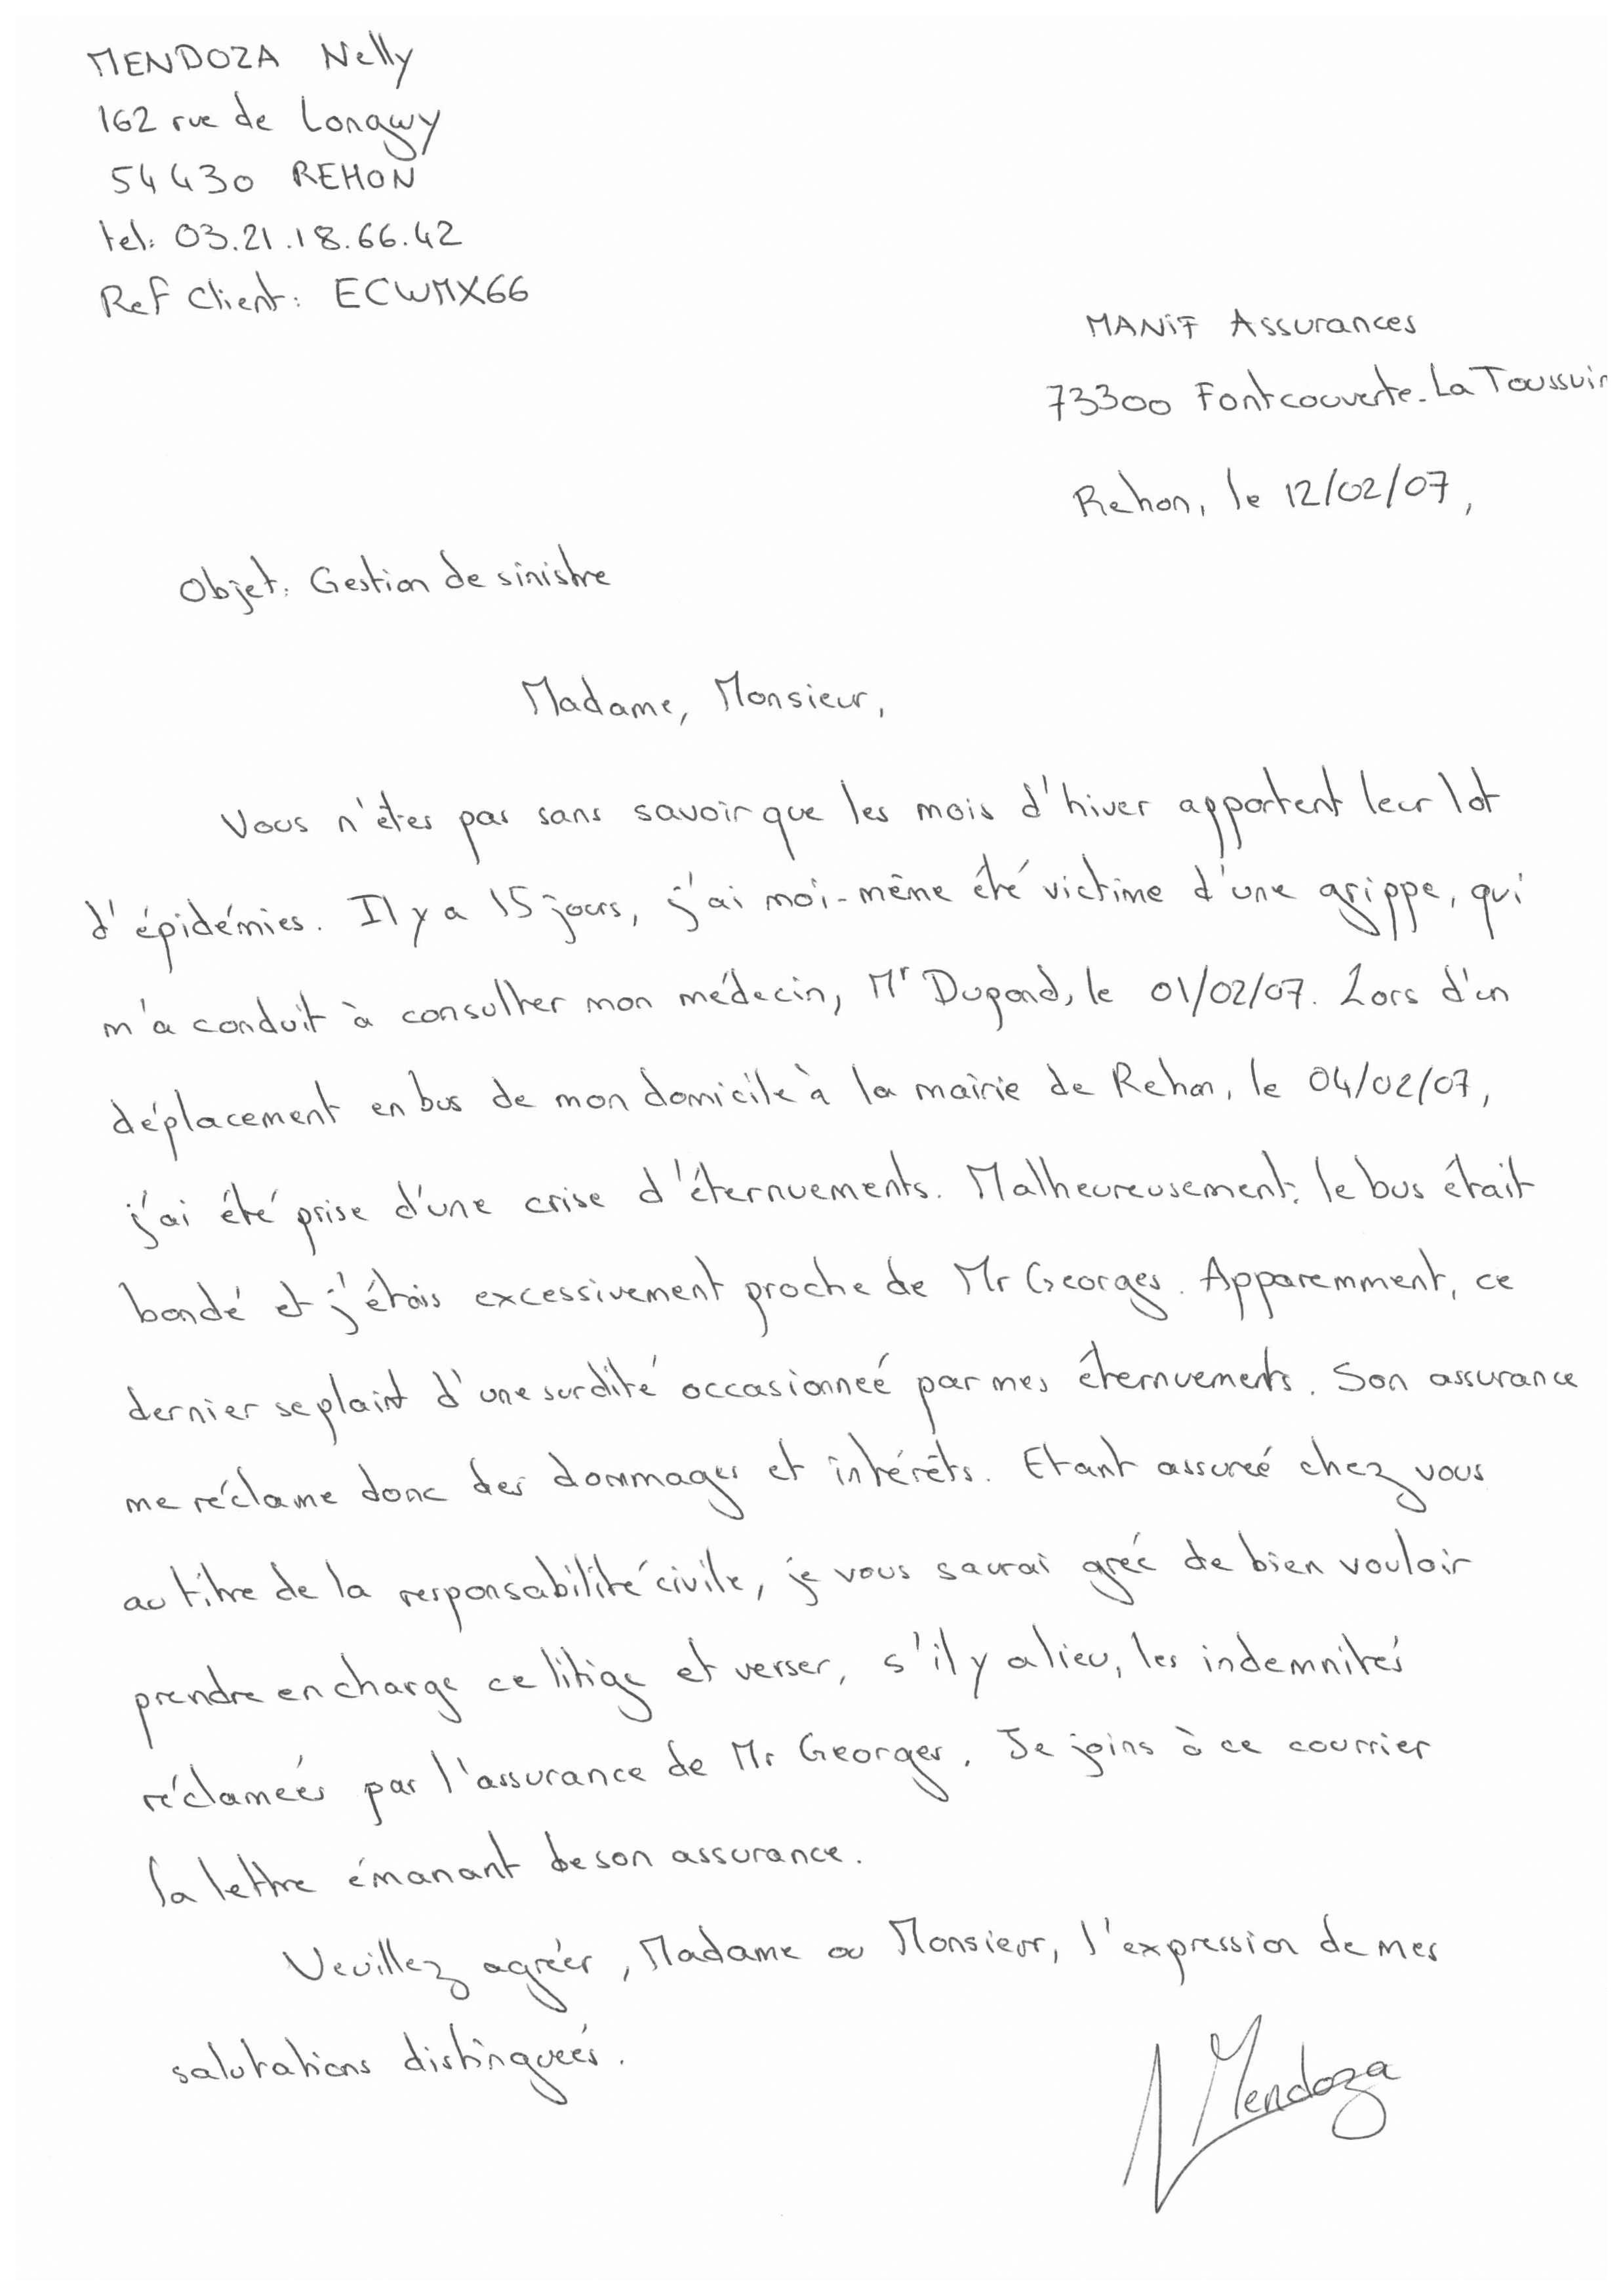 MENDOZA Nelly
162 rue de Longwy
54430 REHON
tel: 03.21.18.66.42
Ref Client: ECWMX66
MANIF Assurances
73300 Fontcouverte-La Toussuir
Rehon, le 12/02/07,
Objet: Gestion de sinistre
Madame, Monsieur,
Vous n'êtes pas sans savoir que les mois d'hiver apportent leur lot
d'épidémies. Il y a 15 jours, j'ai moi-même été victime d'une grippe, qui
m'a conduit à consulter mon médecin, Mr Dupond, le 01/02/07. Lors d'un
déplacement en bus de mon domicile à la mairie de Rehon, le 04/02/07,
j'ai été prise d'une crise d'éternuements. Malheureusement, le bus était
bondé et j'étais excessivement proche de Mr Georges. Apparemment, ce
dernier se plaint d'une surdité occasionneé par mes éternuements. Son assurance
me réclame donc des dommages et intérêts. Etant assureé chez vous
au titre de la responsabilité civile, je vous saurai greé de bien vouloir
prendre en charge ce litige et verser, s'il y a lieu, les indemnités
réclameés par l'assurance de Mr Georges. Je joins à ce courrier
la lettre émanant de son assurance.
Veuillez agréer, Madame ou Monsieur, l'expression de mes
salutations distingueés.
Mendoza